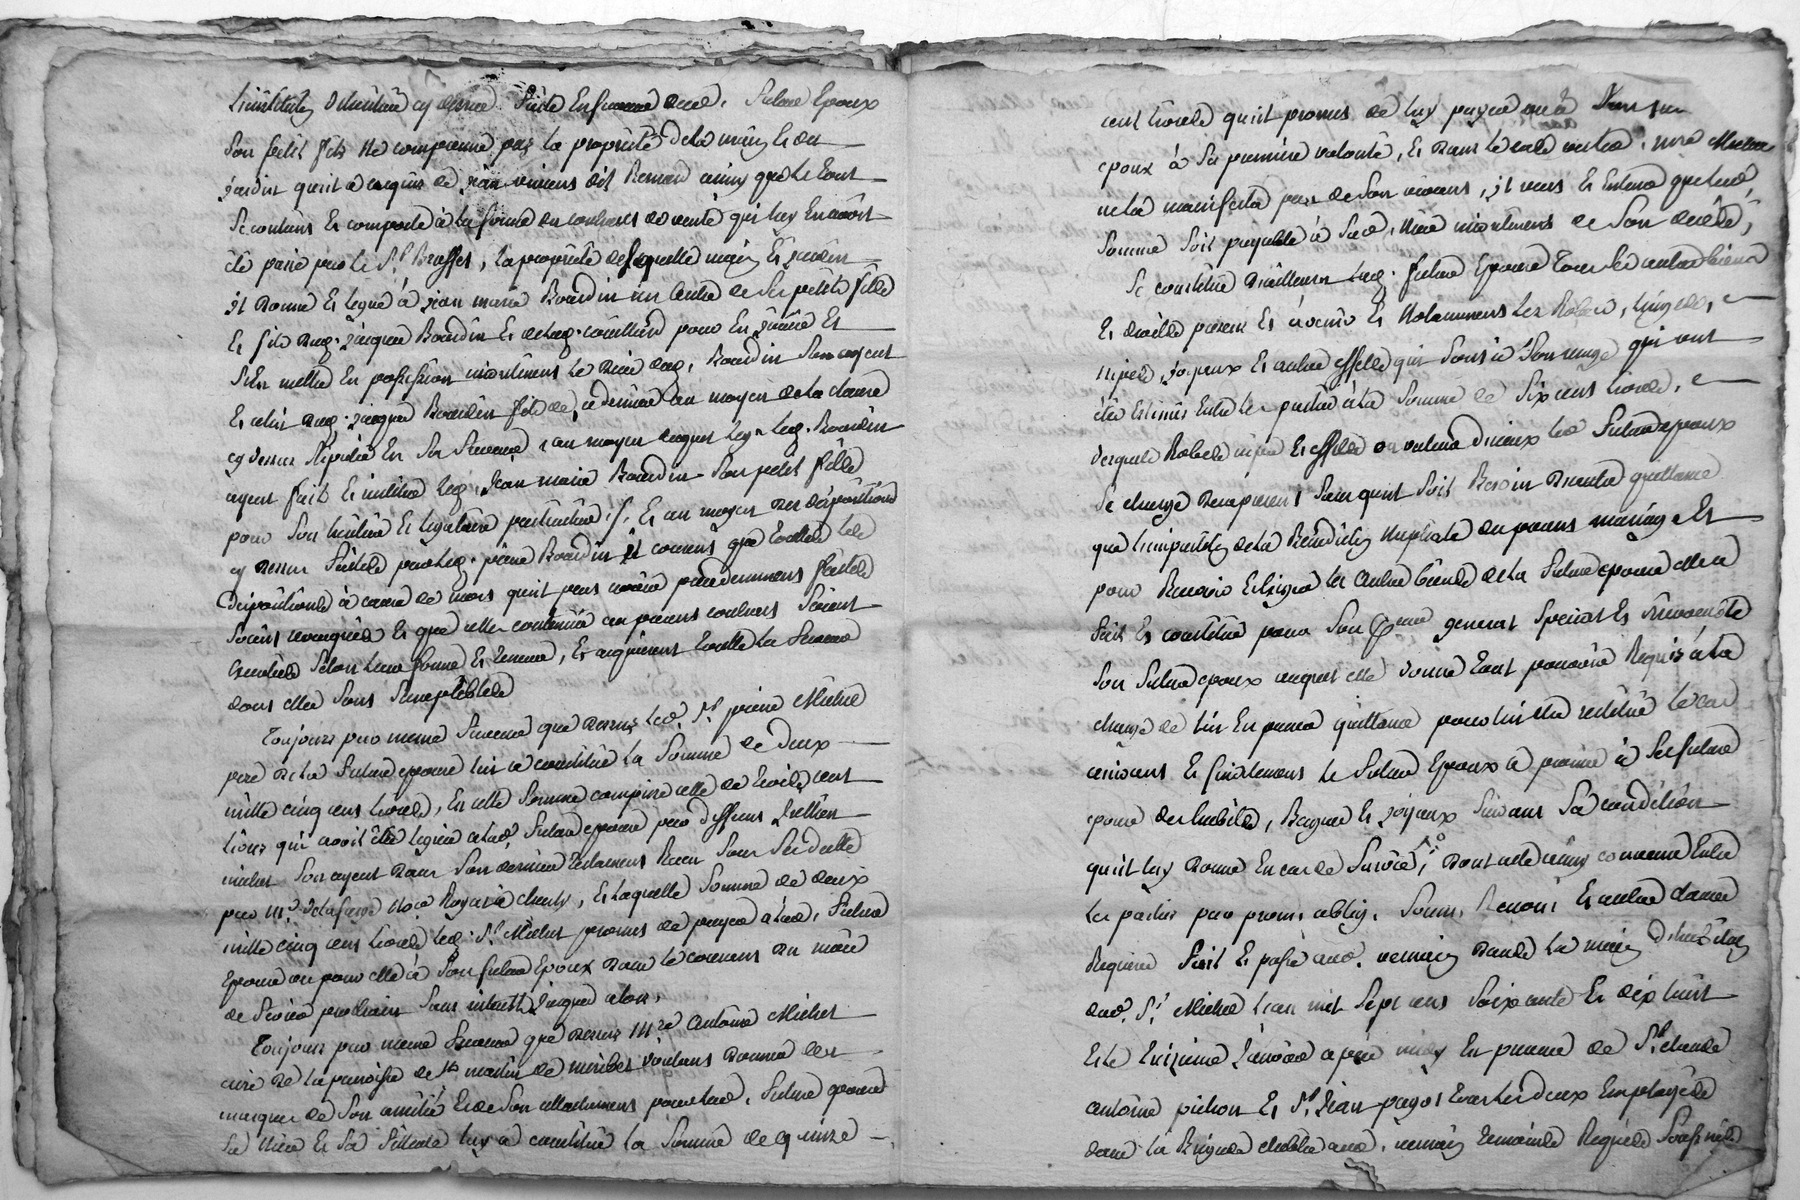 L'institution d'heritier cy dessus faite en faveur dud. futur Epoux
son petit fils ne comprenne pas la proprieté de la maison et du
jardin qu'il a acquis de jean vincens dit Bernard ainsy que le tout
se contient et comporte à la forme du contract de vente qui luy en a été
été passé par le Sr. Brosset, la proprieté de laquelle maison et jardin
il donne et legue à jean marie Bourdin un autre de ses petits fils
et fils dud. jacques Bourdin et de lad. pour en jouir et
s'en mettre en possession incontinent le decès dud. Bourdin son ayeul
et celui dud. jacques Bourdin fils de ce dernier au moyen de la clause
cy dessus stipulée en sa faveur, au moyen duquel leg led. Bourdin
ayeul fait et institue led. jean marie Bourdin son petit fils
pour son heritier et legataire particulier. Et au moyen des dispositions
cy dessus faites par led. pierre Bourdin il consent que toutes les
dispositions à cause de mort qu'il peut avoir precedemment faites
soient revoquées et que celles contenues au present contract soient
executées selon leur forme et teneur, et acquierent toute la faveur
dont elles sont susceptibles
Toujours par meme faveur que dessus led. Sr. pierre Michel
pere de la future epouse lui a constitué la somme de deux
mille cinq cens livres, en cette somme comprise celle de trois cent
livres qui avoit été leguée à lad. future epouse par deffunt
michel son ayeul dans son dernier testament reçu sous sa datte
par Me. Delafaye Nore. Royal à , et laquelle somme de deux
mille cinq cens livres led. Sr. Michel promet de payer à lad. future
Epouse ou pour elle à son futur Epoux dans le courant du mois
de fevrier prochain sans interets jusques alors.
Toujours par meme faveur que dessus Mre. Antoine Michel
curé de la paroisse de St. martin de miribel voulant donner des
marques de son amitié et de son attachement pour lad. future epouse
sa niece et sa filleule luy a constitué la somme de quinze
cent livres qu'il promet de luy payer ou à son futur
epoux à sa premiere volonté, et dans le cas ou led. Mre Michel
ne la manifesta pas de son vivant, il veut et entend que lad.
somme soit payable à sad. niece incontinent de son decès,
se constitue d'ailleurs lad. future epouse tous ses autres biens
et droits presens et à venir et notamment les Robes, linges,
nipes, joyaux et autres effets qui sont à son usage qui ont
été estimés entre les parties à la somme de six cens livres,
desquels Robes nipes et effets ou valeur d'iceux led. futur epoux
se charge dès à present sans qu'il soit Besoin d'autre quittance
que l'impartition de la Benediction Nuptiale du present mariage. Et
pour Recevoir et exiger les autres biens de la future epouse elle a
fait et constitué pour son Preur general special et irrevocable
son futur epoux auquel elle donne tout pouvoir Requis à la
charge de lui en passer quittance pour lui être restitué le cas
arrivant et finalement le futur Epoux a promis à sa future
epouse des habits, Bagues et joyaux suivant sa condition
qu'il luy donne en cas de survie, dont acte ainsy convenu entre
les parties par promi. oblig. soum. Renonc. et autres clauses
Requises fait et passé aud. dans la maison d'habitation
dud. Sr. Michel l'an mil sept cens soixante et dix huit
et le treizieme janvier après midy en presence de Sr. claude
antoine pichon et Sr. jean pagot tous les deux employés
dans la Brigade etablie aud. temoins Requis soussignés